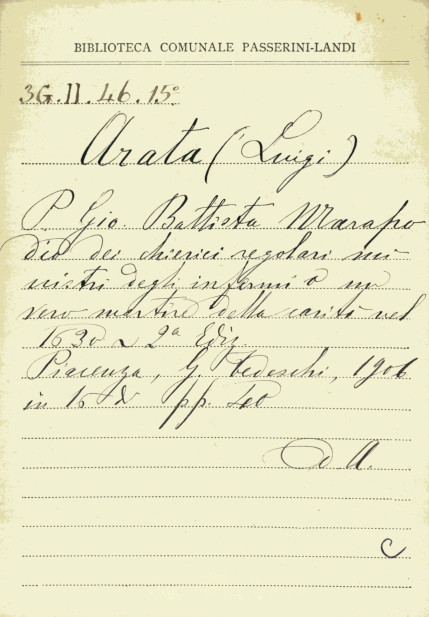 BIBLIOTECA COMUNALE PASSERINI-LANDI
3G.II.46.15°
Arata (Luigi)
P. Gio. Battista Marapo
dio dei chierici regolari mi
nistri degli infermi o un
vero martire della carità nel
1630 2ª Ediz.
Piacenza, G. Tedeschi, 1906
in 16 pp. 40
D A.
C